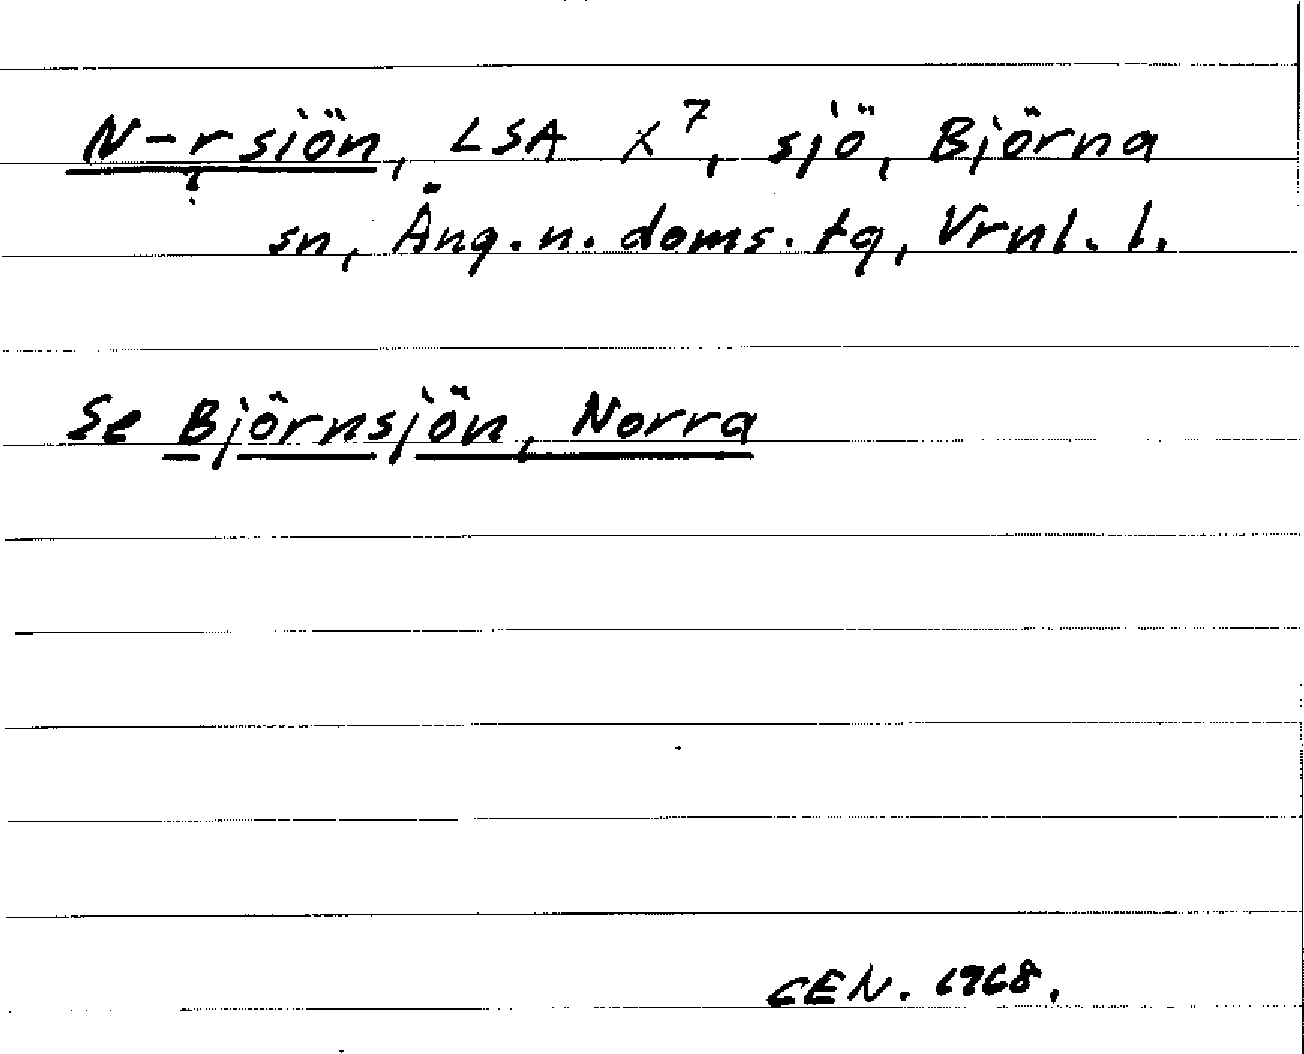 N-r siön, LSA X⁷, sjö, Björna
sn, Ång. n. doms. tg, Vrnl. l.
Se Björnsjön, Norra
CEN. 1968.